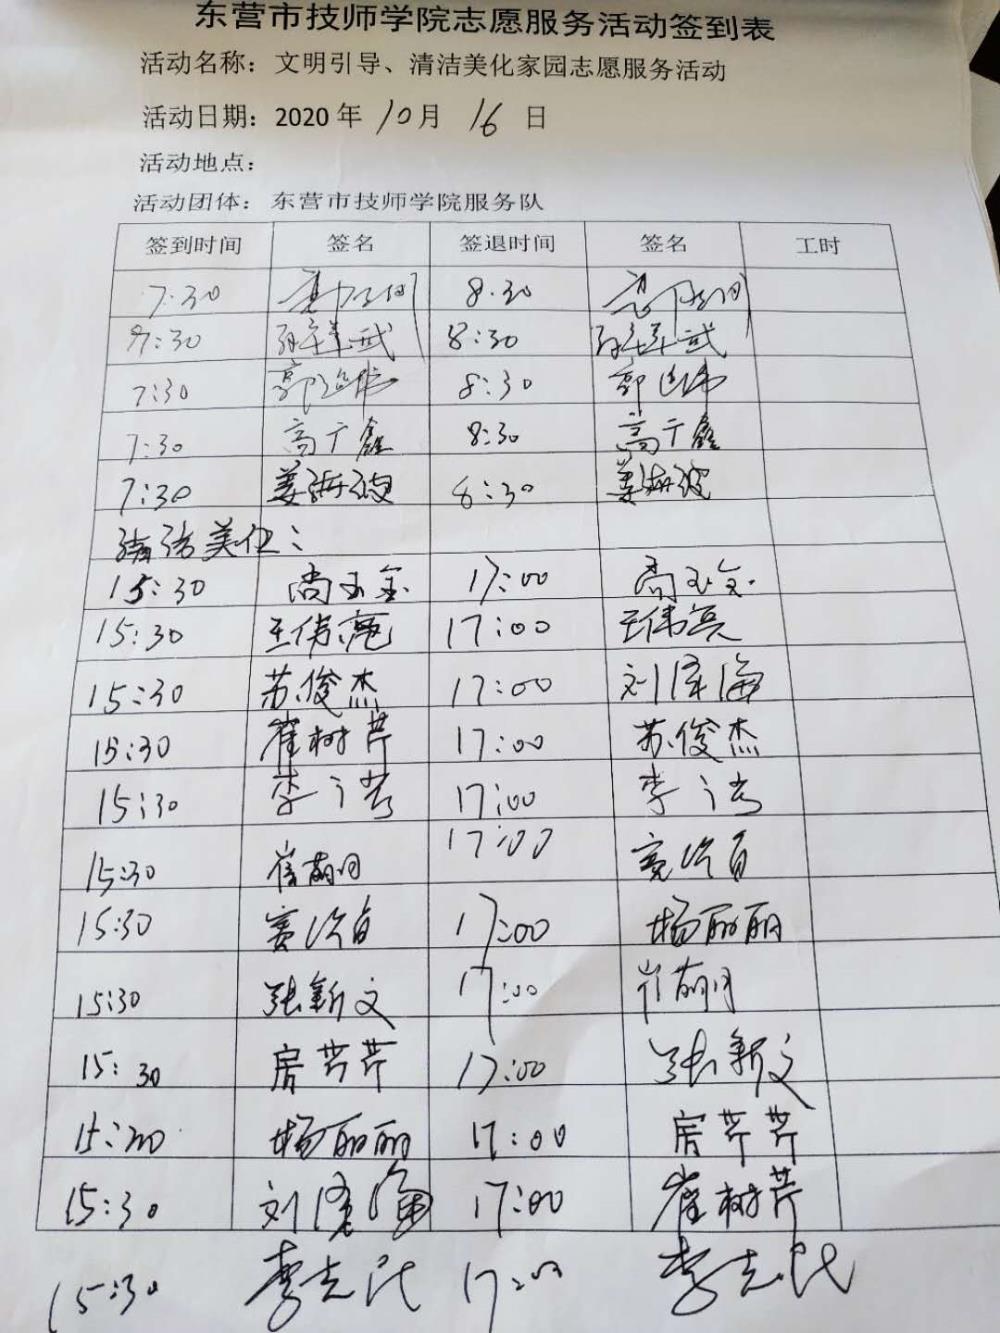 东营市技师学院志愿服务活动签到表
活动名称：文明引导、清洁美化家园志愿服务活动
活动日期：2020 年 10 月 16 日
活动地点：
活动团体：东营市技师学院服务队
签到时间 签名 签退时间 签名 工时
7:30 8:30
7:30 8:30
7:30 郭 8:30 郭
7:30 高于鑫 8:30 高于鑫
7:30 姜海波 8:30 姜海波
清洁美化：
15:30 尚玉金 17:00 尚玉金
15:30 王伟亮 17:00 王伟亮
15:30 苏俊杰 17:00 刘泽海
15:30 崔树芹 17:00 苏俊杰
15:30 李 17:00 李
15:30 崔萌月 17:00
15:30 17:00 杨丽丽
15:30 张新文 17:00 崔萌月
15:30 房芹芹 17:00 张新文
15:30 杨丽丽 17:00 房芹芹
15:30 刘泽海 17:00 崔树芹
15:30 李克民 17:00 李克民